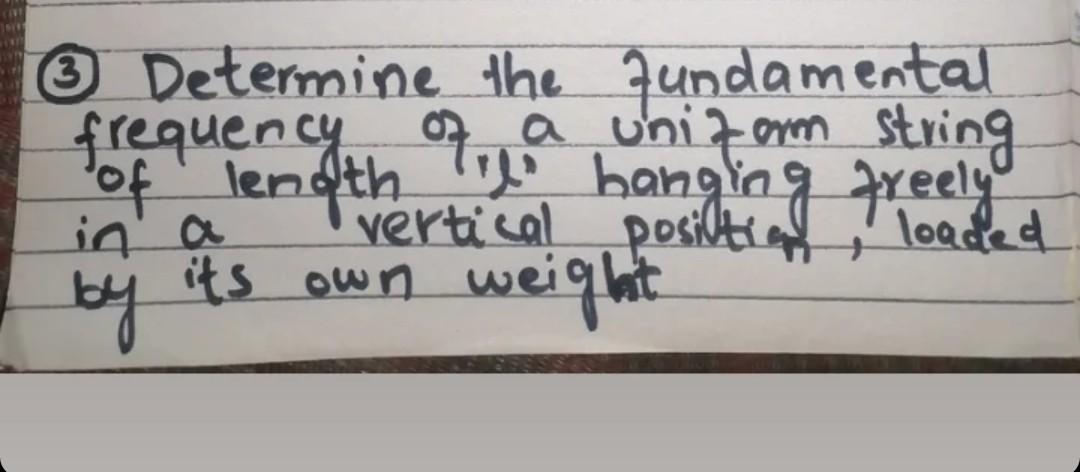 ③ Determine the fundamental
frequency of a uniform string
of length 'l' hanging freely
in a vertical position, loaded
by its own weight